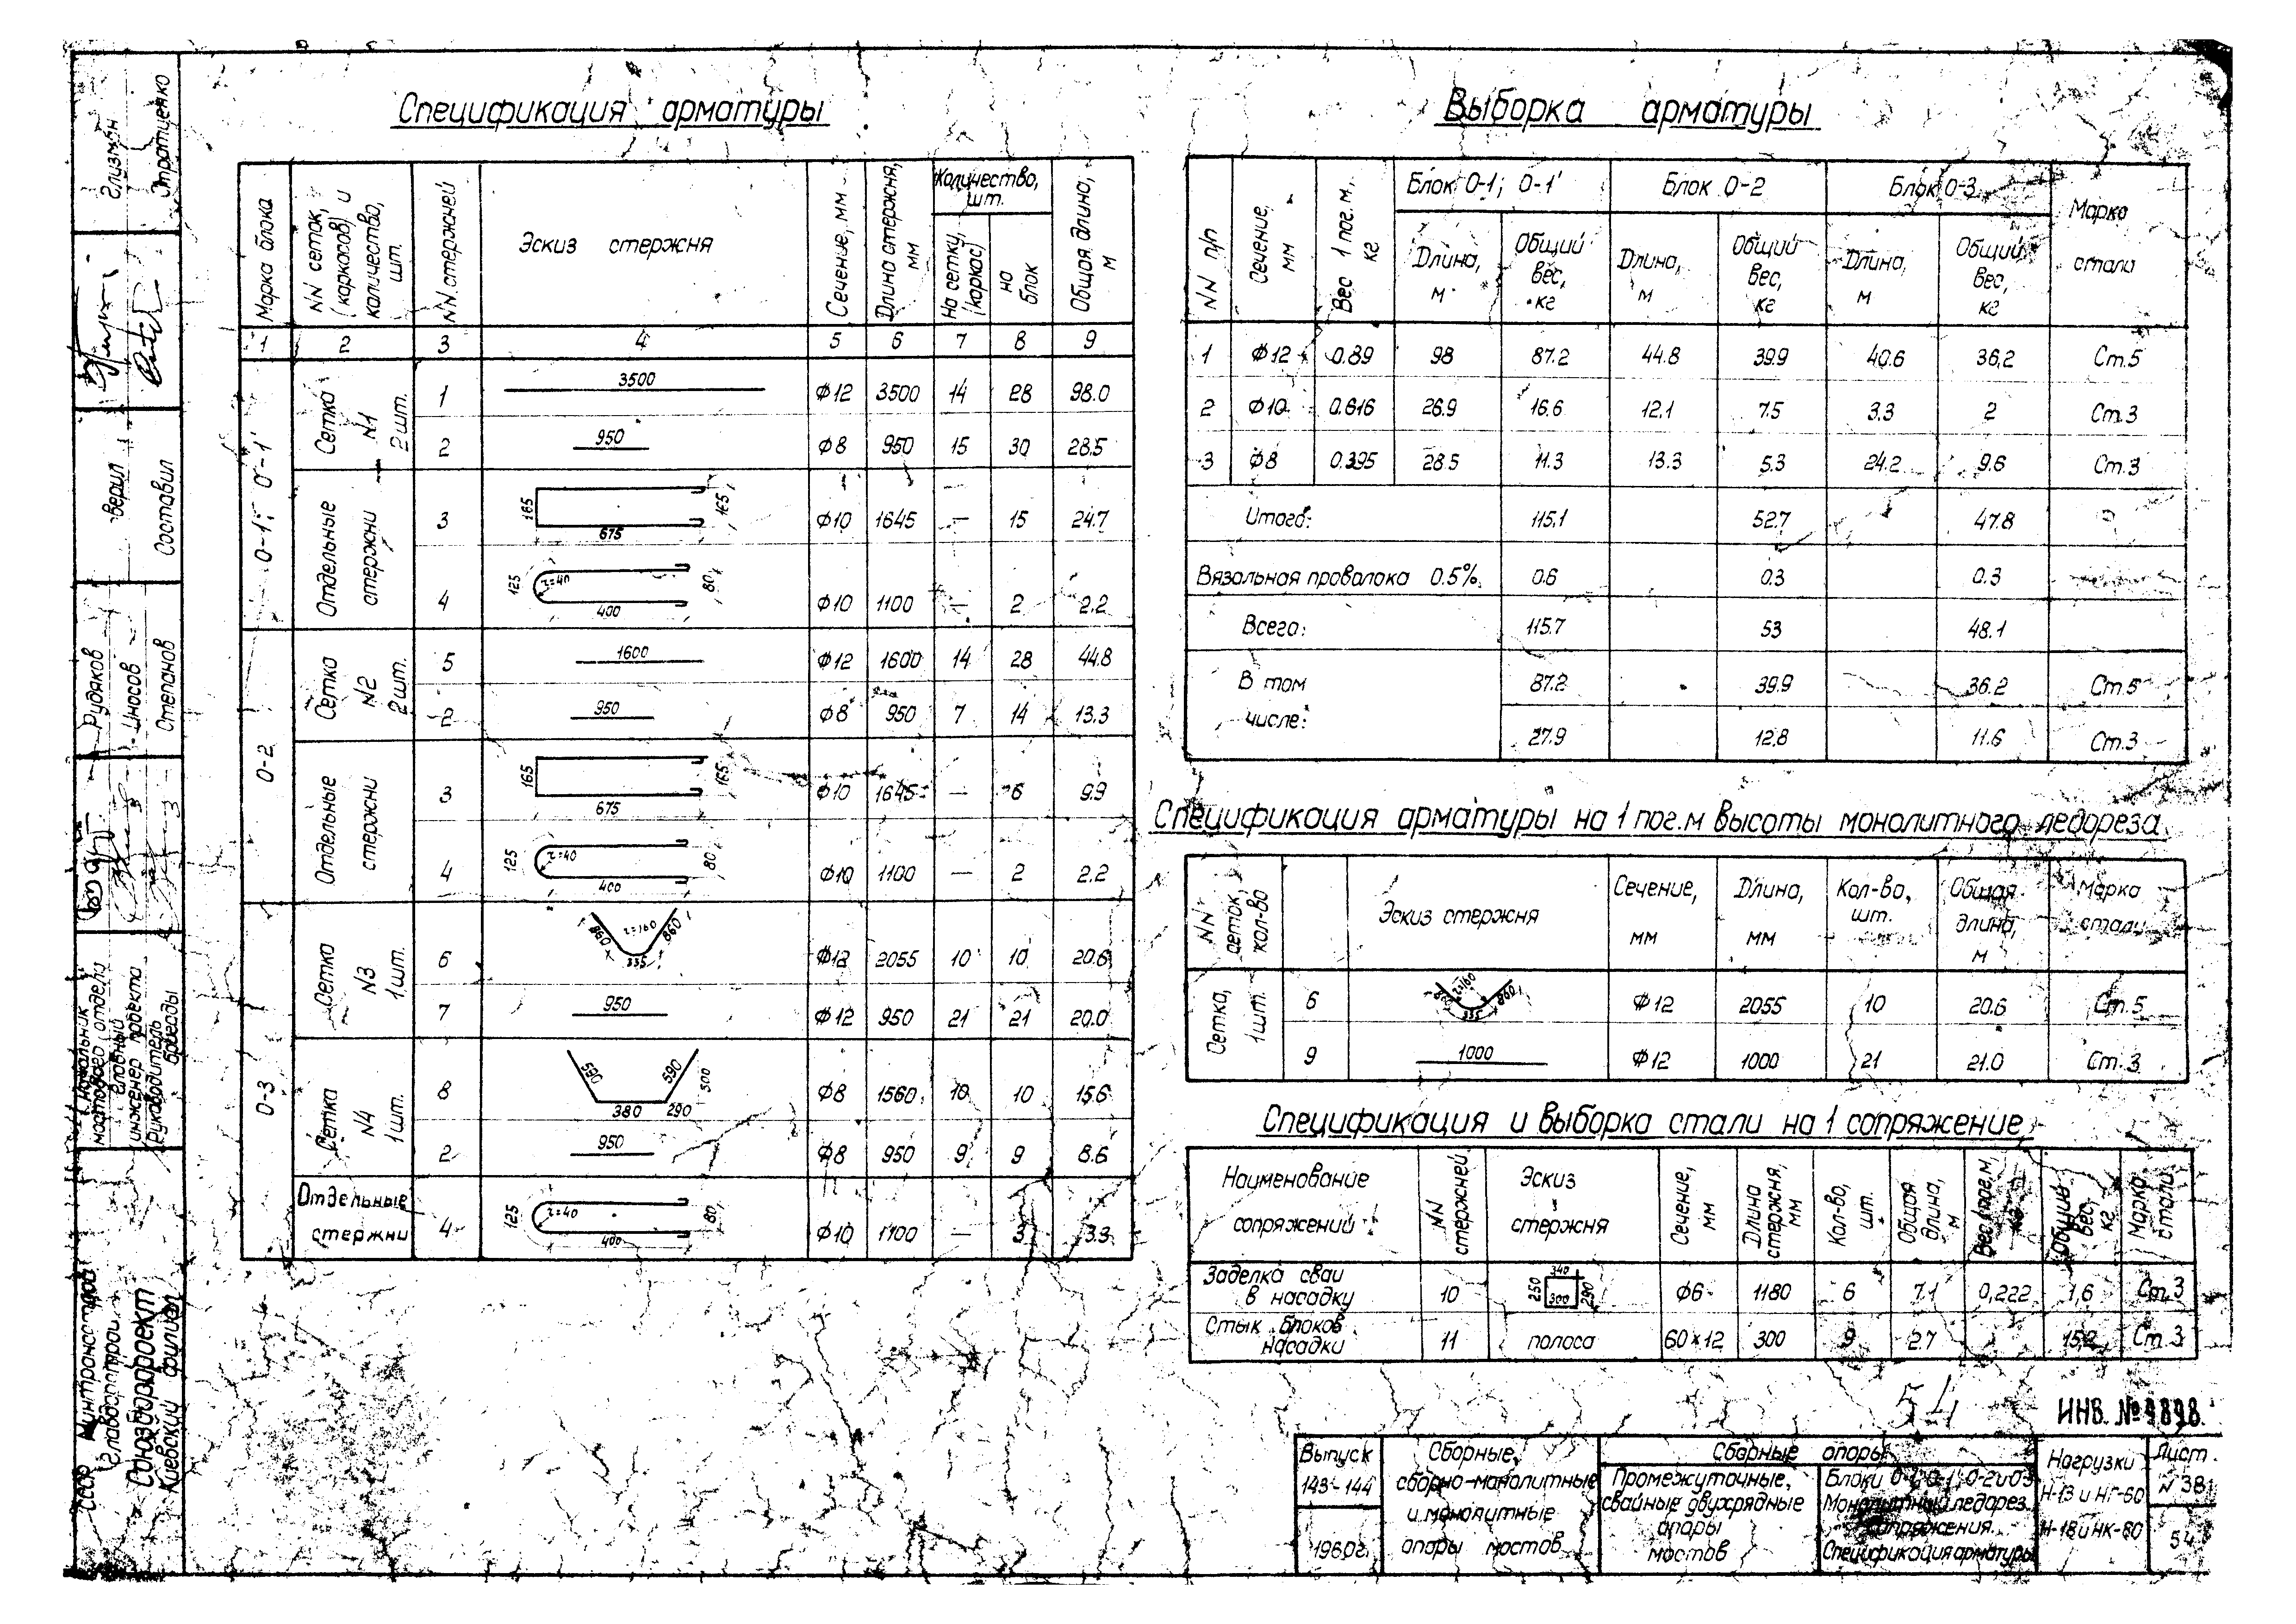 Спецификация арматуры
Марка блока | NN сеток, (каркасов) и количество, шт. | NN стержней | Эскиз стержня | Сечение, мм | Длина стержня, мм | Количество, шт. | Общая длина, м
На сетку, (каркас) | на блок
1 2 3 4 5 6 7 8 9
О-1; О-1'
Сетка N1 2 шт.
1 3500 Ф12 3500 14 28 98.0
2 950 Ф8 950 15 30 28.5
Отдельные стержни
3 165 675 165 Ф10 1645 — 15 24.7
4 125 r=40 400 80 Ф10 1100 — 2 2.2
О-2
Сетка N2 2 шт.
5 1600 Ф12 1600 14 28 44.8
2 950 Ф8 950 7 14 13.3
Отдельные стержни
3 165 675 165 Ф10 1645 — 6 9.9
4 125 r=40 400 80 Ф10 1100 — 2 2.2
О-3
Сетка N3 1 шт.
6 860 r=160 860 335 Ф12 2055 10 10 20.6
7 950 Ф12 950 21 21 20.0
Сетка N4 1 шт.
8 590 590 500 380 290 Ф8 1560 10 10 15.6
2 950 Ф8 950 9 9 8.6
Отдельные стержни
4 125 r=40 400 80 Ф10 1100 — 3 3.3
Выборка арматуры
NN п/п | Сечение, мм | Вес 1 пог. м, кг | Блок О-1; О-1' | Блок О-2 | Блок О-3 | Марка стали
Длина, м | Общий вес, кг | Длина, м | Общий вес, кг | Длина, м | Общий вес, кг
1 Ф12 0.89 98 87.2 44.8 39.9 40.6 36.2 Ст.5
2 Ф10 0.616 26.9 16.6 12.1 7.5 3.3 2 Ст.3
3 Ф8 0.395 28.5 11.3 13.3 5.3 24.2 9.6 Ст.3
Итого: 115.1 52.7 47.8
Вязальная проволока 0.5% 0.6 0.3 0.3
Всего: 115.7 53 48.1
В том числе:
87.2 39.9 36.2 Ст.5
27.9 12.8 11.6 Ст.3
Спецификация арматуры на 1 пог.м высоты монолитного ледореза
NN сеток, кол-во | Эскиз стержня | Сечение, мм | Длина, мм | Кол-во, шт. | Общая длина, м | Марка стали
Сетка, 1 шт.
6 860 r=160 860 335 Ф12 2055 10 20.6 Ст.5
9 1000 Ф12 1000 21 21.0 Ст.3
Спецификация и выборка стали на 1 сопряжение
Наименование сопряжений | NN стержней | Эскиз стержня | Сечение, мм | Длина стержня, мм | Кол-во, шт. | Общая длина, м | Вес 1 пог. м, кг | Общий вес, кг | Марка стали
Заделка сваи в насадку 10 340 250 300 290 Ф6 1180 6 7.1 0,222 1,6 Ст.3
Стык блоков насадки 11 полоса 60×12 300 9 2.7 15,2 Ст.3
54
ИНВ. № 9898
Выпуск 143-144
1960г.
Сборные, сборно-монолитные и монолитные опоры мостов
Сборные опоры
Промежуточные, свайные двухрядные опоры мостов
Блоки О-1; О-1'; О-2 и О-3
Монолитный ледорез.
Сопряжения.
Спецификация арматуры
Нагрузки
Н-13 и НГ-60
Н-18 и НК-80
Лист
N 38
54
Глизман
Стратиенко
Верил
Составил
Рудяков
Иносов
Степанов
Начальник мостового отдела
Главный инженер проекта
Руководитель бригады
СССР Минтрансстрой
Главдорстрой
Союздорпроект
Киевский филиал